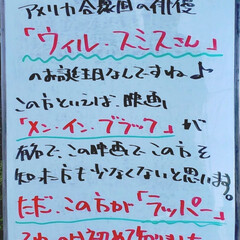 アメリカ合衆国の俳優
「ウィル・スミスさん」
のお誕生日なんですね♪
この方といえば、映画
「メン・イン・ブラック」が
有名で、この映画でこの方を
知った方も少なくないと思います。
ただ、この方が「ラッパー」